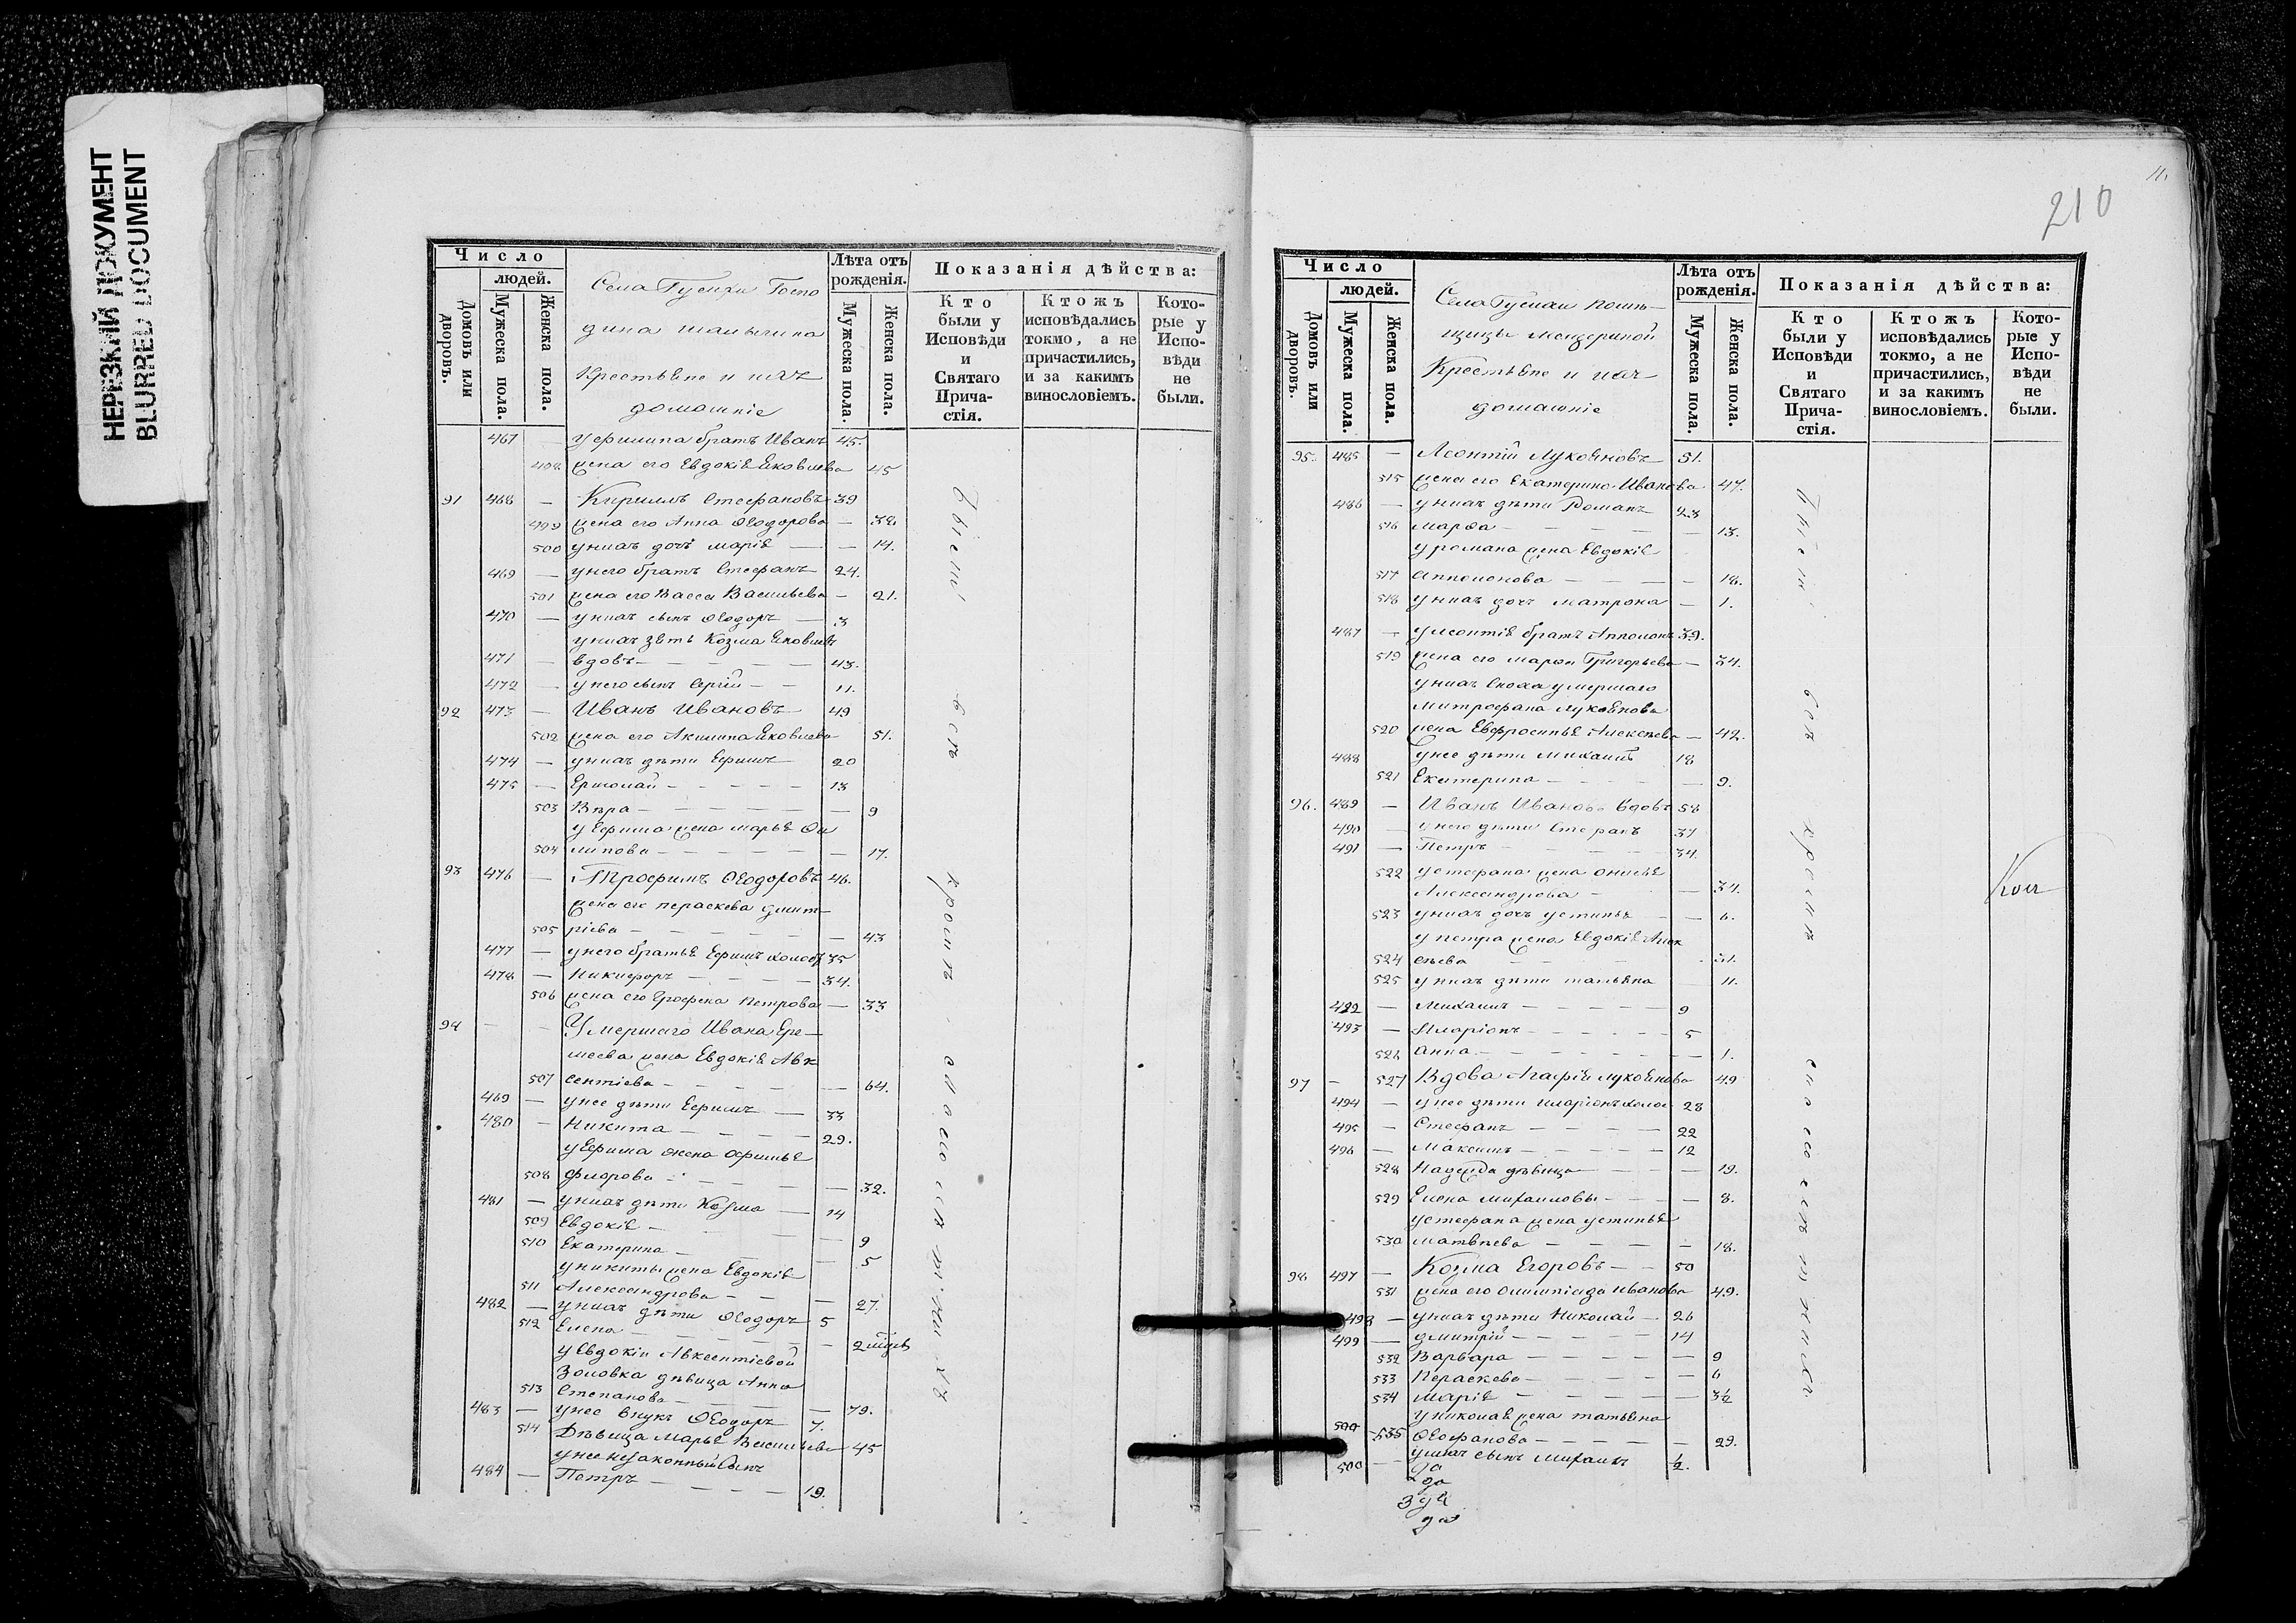 НЕРЕЗКИЙ ДОКУМЕНТ
BLURRED DOCUMENT
Число
людей.
Домовъ или дворовъ.
Мужеска пола.
Женска пола.
Села Гуслки Госпо
дина
Крестьяне и ихъ
домашніе
Лѣта отъ рожденія.
Мужеска пола.
Женска пола.
Показанія дѣйства:
Кто были у Исповѣди и Святаго Прича-стія.
Ктожъ исповѣдались токмо, а не причастились, и за какимъ винословіемъ.
Кото-рые у Испо-вѣди не были.
467 — уѳилипа братъ Иванъ 45.
498 жена его Евдокія Яковлева 45
91 468 — Кириллъ Стефановъ 39
499 жена его Анна Ѳеодорова — 38
500 унихъ дочь марія — — 14.
469 — унего братъ Стефанъ 24.
501 жена его Васса Васильева — 21.
470 — унихъ сынъ Ѳеодоръ — 3
унихъ зять Козма Яковлевъ
471 — вдовъ — — — — 43.
472 — унего сынъ Сергій — — 11.
92 473 — Иванъ Ивановъ 49
502 жена его Акилина Яковлева 51.
474 — унихъ дѣти Ефимъ 20
475 — Ермолай — — — — 13
503 Вѣра — — — — — 9
у Ефима жена марья Фи
504 липова — — — — — 17.
93 476 — Трофимъ Ѳеодоровъ 46.
жена его параскева дмит—
505 ріева — — — — — 43
477 — унего братья Ефимъ холост 35
478 — Никифоръ — — — 34.
506 жена его Ерофена Петрова — 33
94 — — Умершаго Ивана Ере—
меева жена Евдокія Авк
507 сентіева — — — — — 64.
469 — унее дѣти Ефимъ — 33
480 — Никита — — — — 29.
у Ефима жена Офимья
508 флорова — — — — 32.
481 — унихъ дѣти Козма — 14
509 Евдокія — — — 9
510 Екатерина — — — 5
уникиты жена Евдокія
511 Александрова — — — 27.
482 — унихъ дѣти Ѳеодоръ 5
512 Елена — — — — 2
у Евдокіи Авксентіевой
золовка дѣвица Анна
513 Степанова — — — 79.
483 — унее внукъ Ѳеодоръ 7.
514 Дѣвица Марья Васильева 45
унее незаконный сынъ
484 — Петръ — — — — 19.
Были
всѣ
кромѣ
210
11.
Число
людей.
Домовъ или дворовъ.
Мужеска пола.
Женска пола.
Села Гуслки помѣ—
щицы
Крестьяне и ихъ
домашніе
Лѣта отъ рожденія.
Мужеска пола.
Женска пола.
Показанія дѣйства:
Кто были у Исповѣди и Святаго Прича-стія.
Ктожъ исповѣдались токмо, а не причастились, и за какимъ винословіемъ.
Кото-рые у Испо-вѣди не были.
95. 485 — Леонтій Лукояновъ 51.
515 жена его Екатерина Иванова 47.
486 — унихъ дѣти Романъ 23
516 марѳа — — — — — 13.
у романа жена Евдокія
517 апполонова — — — — 18.
518 унихъ дочь матрона — 1.
487 — улеонтія братъ Апполонъ 39.
519 жена его марѳа Григорьева — 34.
унихъ сноха умершаго
митрофана лукоянова
520 жена Евфросинья Алексѣева — 42.
488 унее дѣти михаилъ 18
521 Екатерина — — — — 9.
96. 489 — Иванъ Ивановъ вдовъ 58
490 — унего дѣти Стефанъ 37
491 — Петръ — — — — 34.
522 устефана жена онисья
Александрова — — 34.
523 унихъ дочь устинья — — 6.
у петра жена Евдокія Алек
524 сѣева — — 31.
525 унихъ дѣти татьяна 11.
492 — Михаилъ — — — — 9
493 — Иларіонъ — — — — 5
526 анна — — — — — — 1.
97 — 527 Вдова Агафія лукоянова 49
494 — унее дѣти иларіонъ холос 28
495 — Стефанъ — — — — 22
496 — Максимъ — — — — 12
528 Надежда дѣвица — — — 19.
529 Елена михаиловы — — — 8.
устефана жена устинья
530 матвѣева — — — — — 18.
98 497 — Козма Егоровъ — — 50
531 жена его олимпіада иванова 49.
498 — унихъ дѣти Николай — 26
499 — дмитрій — — — — 14
532 Варвара — — — — — 9
533 Параскева — — — — 6
534 марія — — — — — 3½
у николая жена татьяна
535 Ѳеофанова — — — — — 29.
500 — унихъ сынъ михаилъ ½.
Были
всѣ
кромѣ